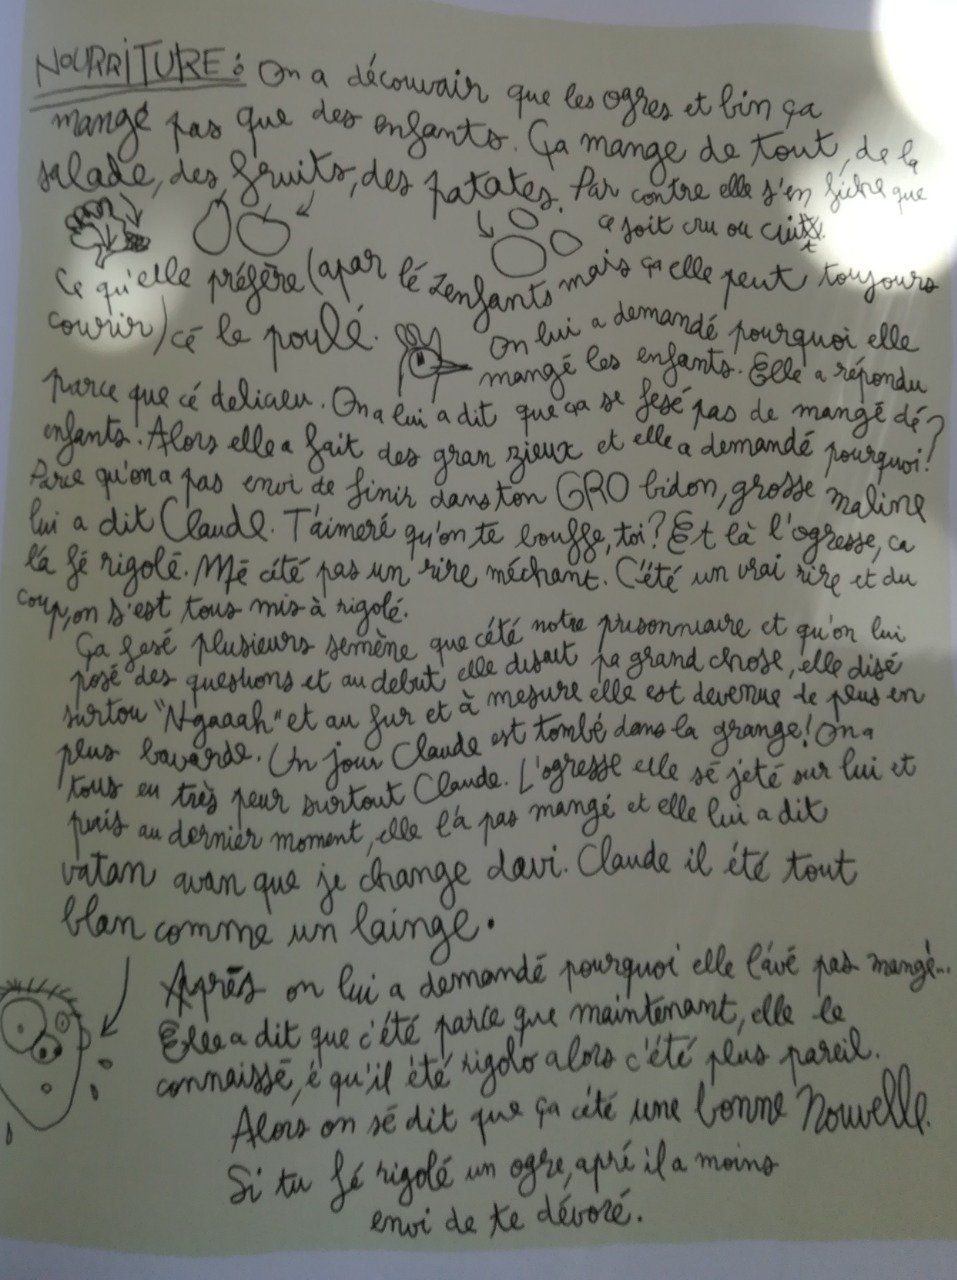 NOURRITURE : On a découvair que les ogres et bin ça
mangé pas que des enfants. Ça mange de tout, de la
salade, des fruits, des patates. Par contre elle s'en fiche que
ce soit cru ou cuit.
Ce qu'elle préfère (apar lé zenfants mais ça elle peut toujours
courir) cé le poulé.
On lui a demandé pourquoi elle
mangé les enfants. Elle a répondu
parce que cé delicieu. On a lui a dit que ça se fesé pas de mangé dé
enfants. Alors elle a fait des gran zieux et elle a demandé pourquoi ?
Parce qu'on a pas envi de finir dans ton GRO bidon, grosse maline
lui a dit Claude. T'aimeré qu'on te bouffe, toi ? Et là l'ogresse, ca
l'a fé rigolé. Mé cété pas un rire méchant. C'été un vrai rire et du
coup, on s'est tous mis à rigolé.
Ça fesé plusieurs semène que cété notre prisonniaire et qu'on lui
posé des questions et au debut elle disait pa grand chose, elle disé
surtou "Ngaaah" et au fur et à mesure elle est devenue de plus en
plus bavarde. Un jour Claude est tombé dans la grange ! On a
tous eu très peur surtout Claude. L'ogresse elle sé jeté sur lui et
puis au dernier moment, elle l'a pas mangé et elle lui a dit
vatan avan que je change davi. Claude il été tout
blan comme un lainge.
Après on lui a demandé pourquoi elle l'avé pas mangé...
Elle a dit que c'été parce que maintenant, elle le
connaissé, é qu'il été rigolo alors c'été plus pareil.
Alors on sé dit que ça cété une bonne Nouvelle.
Si tu fé rigolé un ogre, apré il a moins
envi de te dévoré.